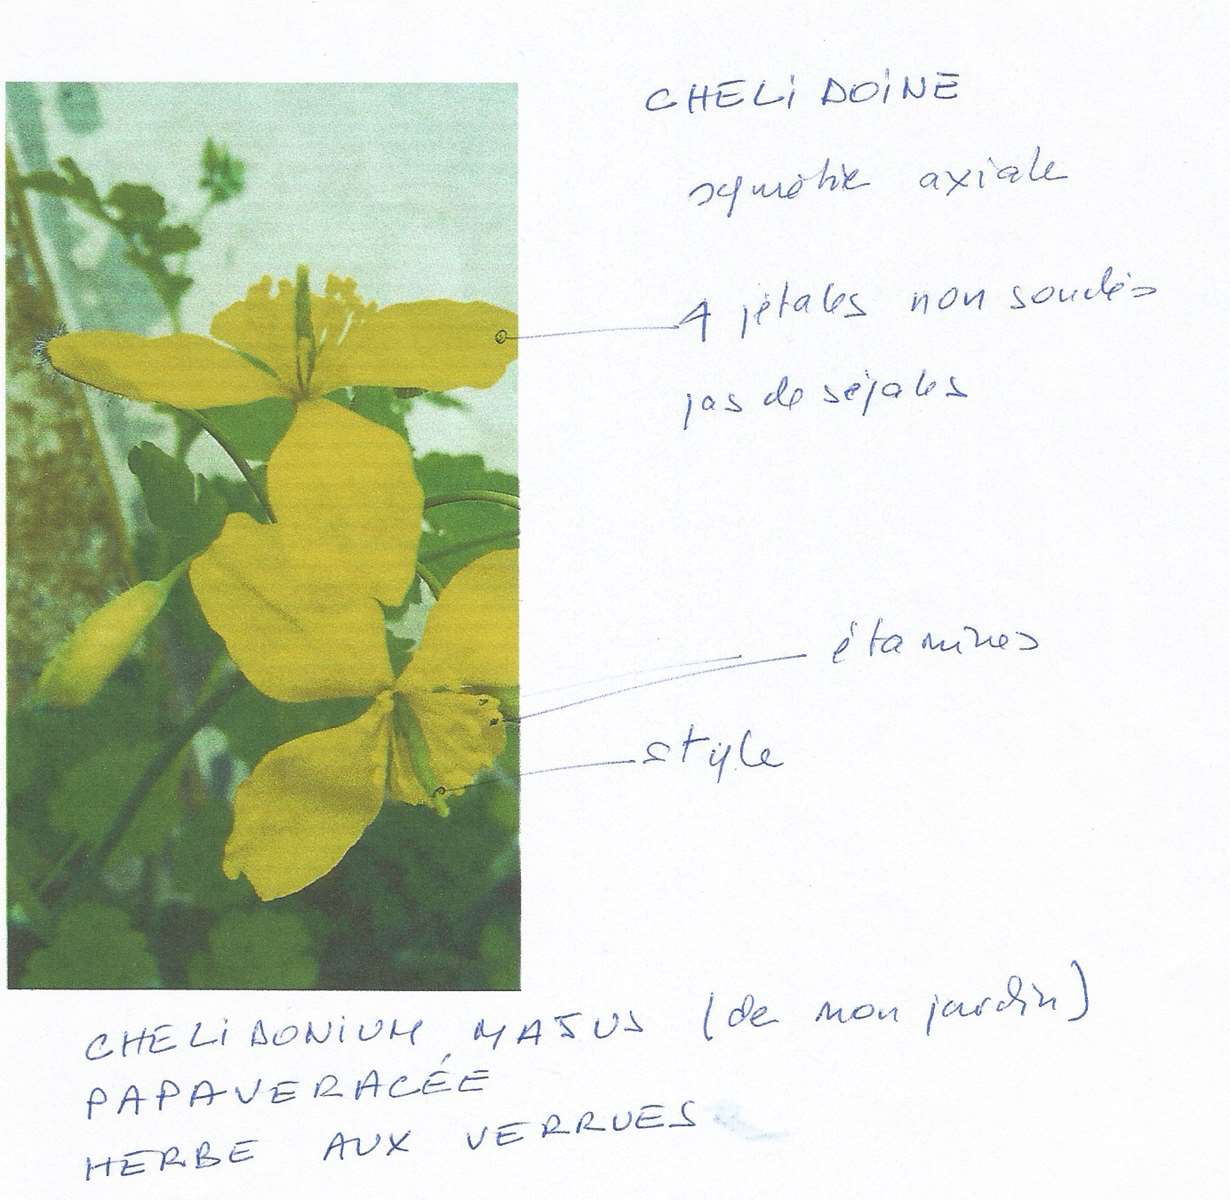 CHELIDOINE
symétrie axiale
4 pétales non soudés
pas de sépales
étamines
style
CHELIDONIUM MAJUS (de mon jardin)
PAPAVERACÉE
HERBE AUX VERRUES